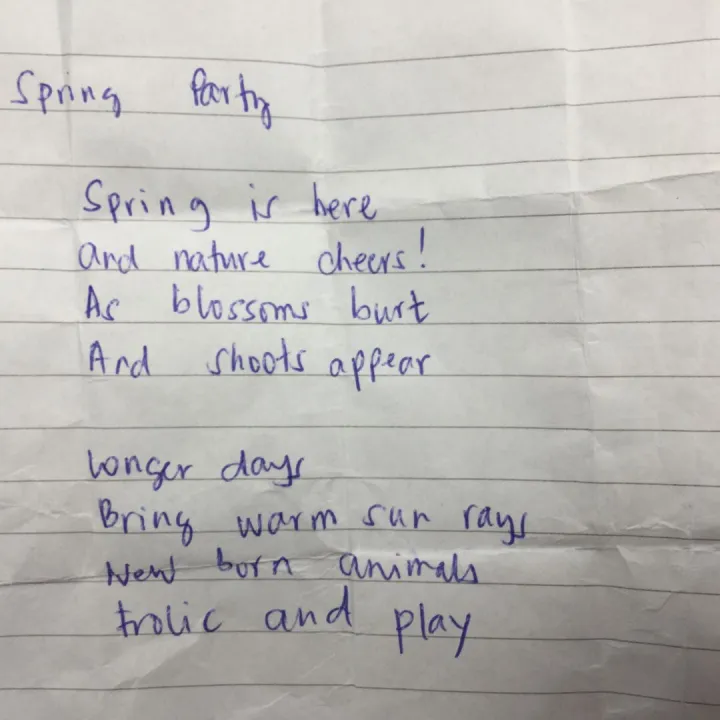 Spring Party
Spring is here
and nature cheers!
As blossoms burt
And shoots appear
longer days
Bring warm sun rays
New born animals
frolic and play